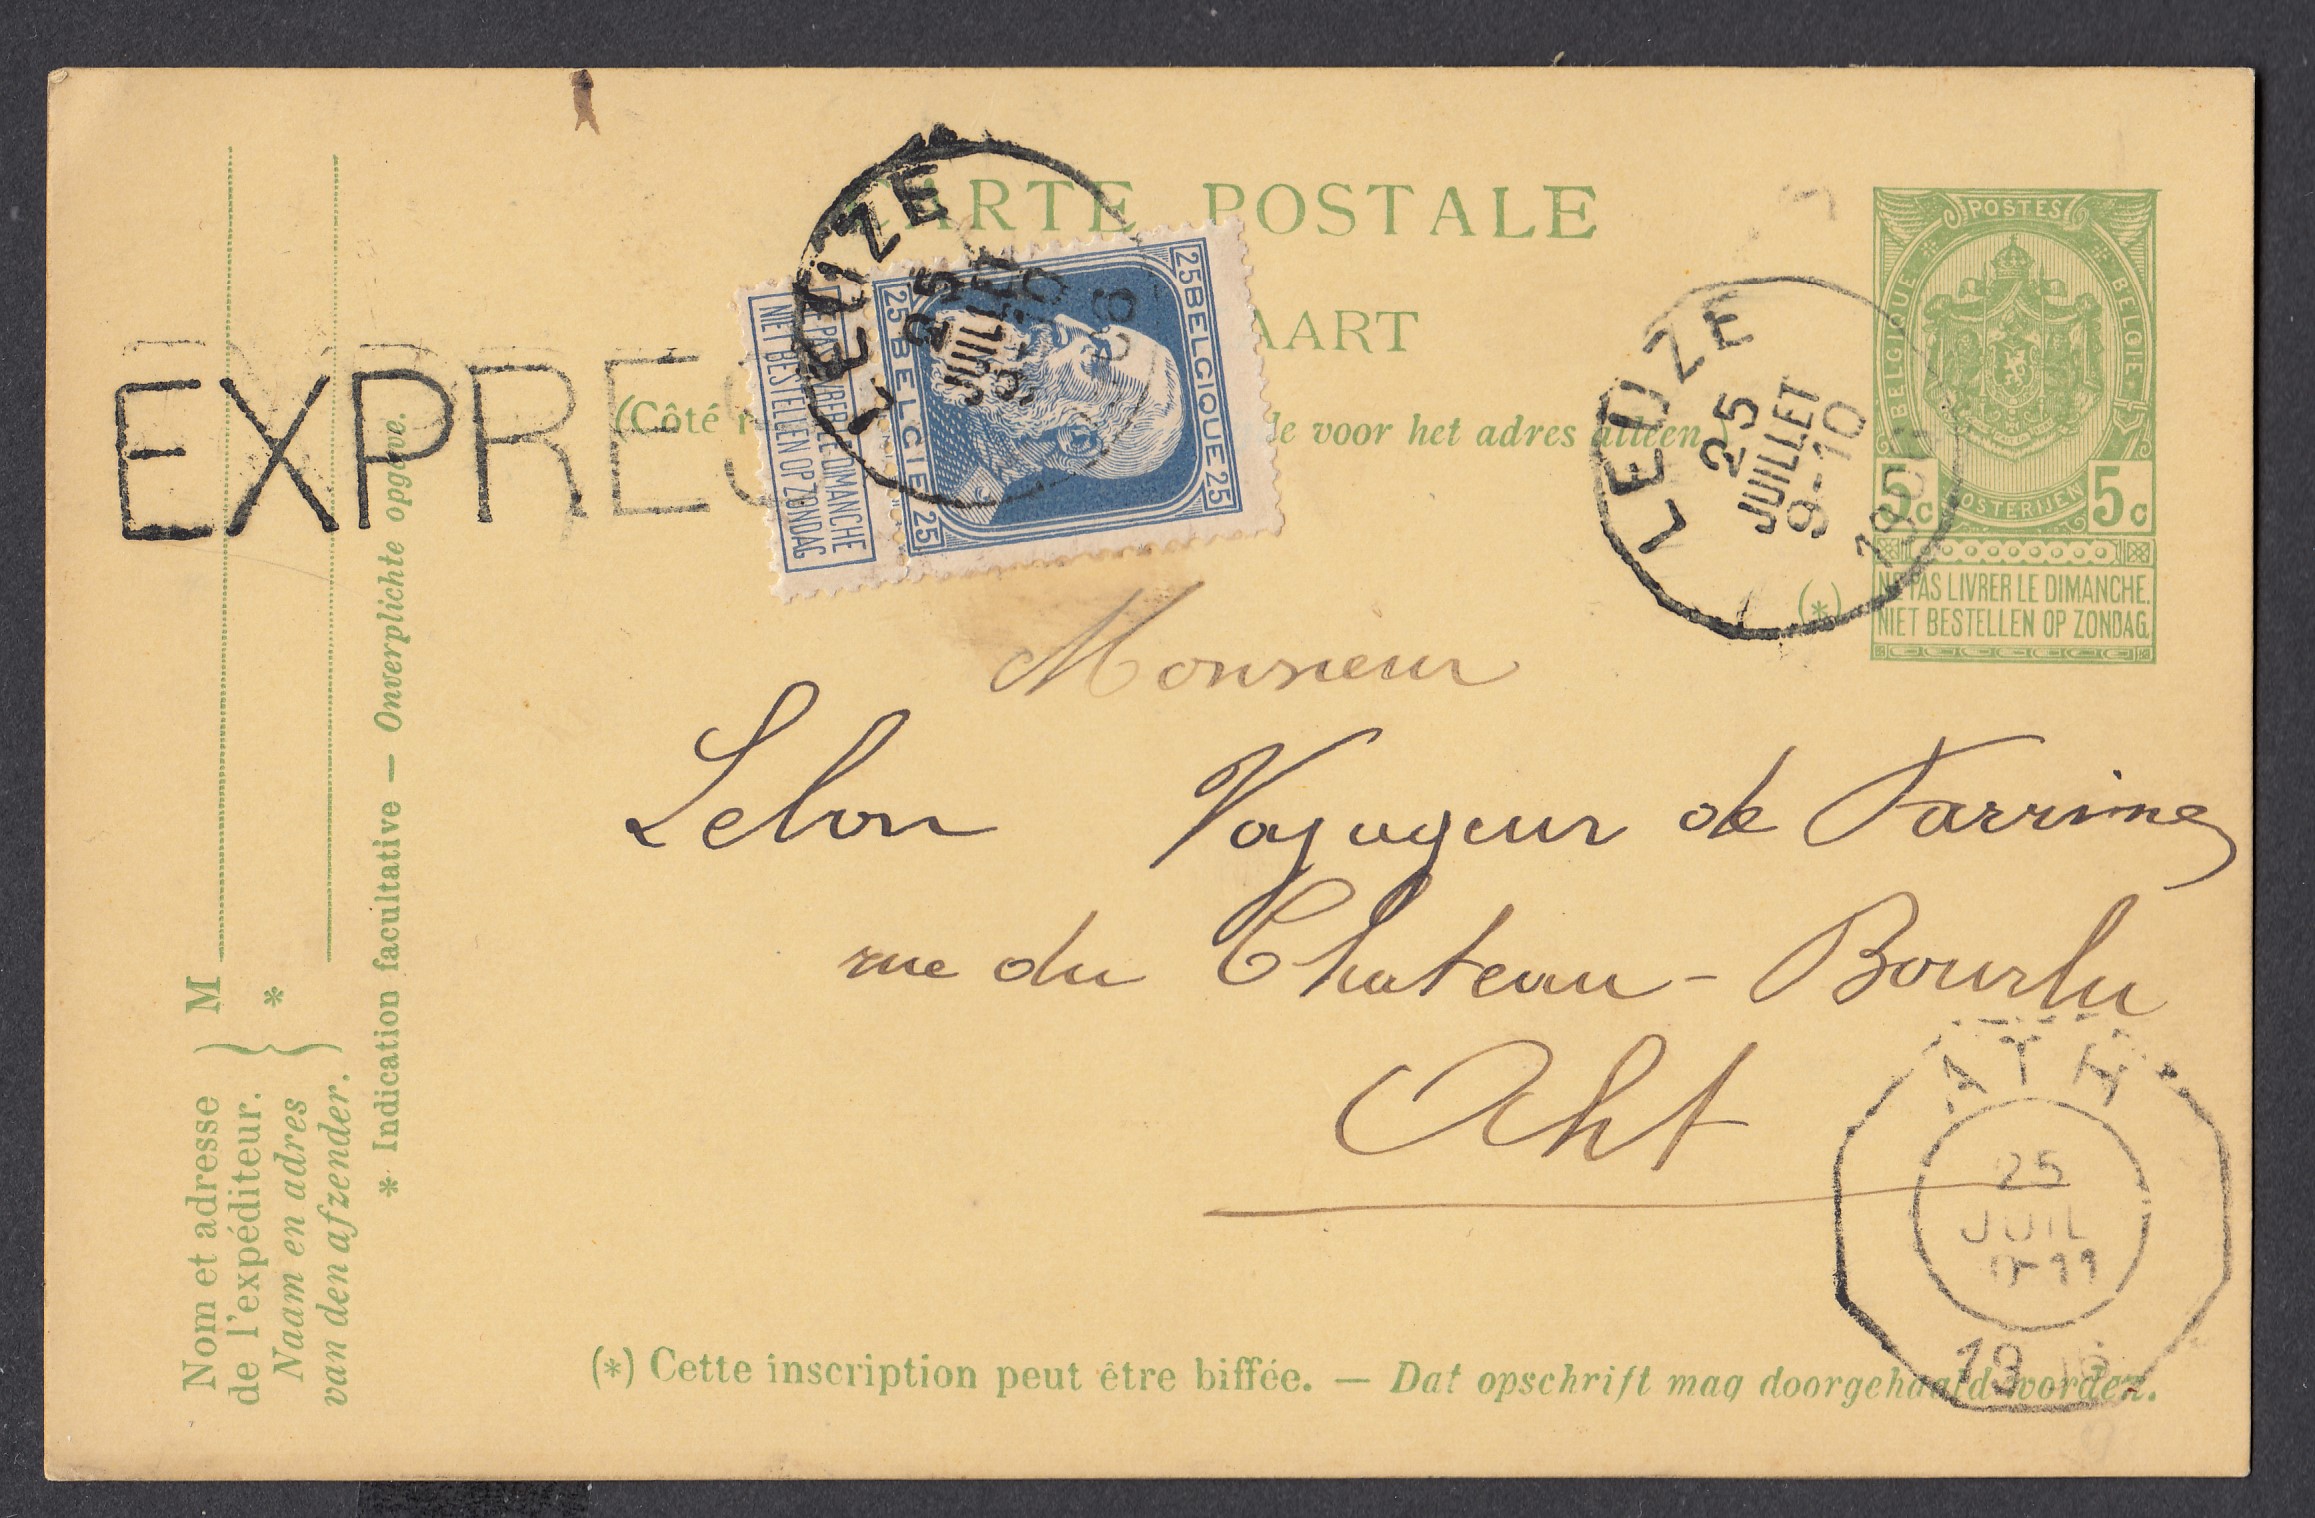 CARTE POSTALE
AART
(Côté
de voor het adres alleen)
EXPRES
LEUZE
25
JUILLET
9-10
25 BELGIQUE 25
25 BELGIE 25
NE PAS LIVRER LE DIMANCHE
NIET BESTELLEN OP ZONDAG
LEUZE
25
JUILLET
9-10
19
POSTES
BELGIQUE
BELGIE
POSTERIJEN
5c 5c
(*)
NE PAS LIVRER LE DIMANCHE.
NIET BESTELLEN OP ZONDAG.
Monsieur
Lelon Voyageur de Farrines
rue du Chateau-Bourlu
Aht
ATH
25
JUIL
11
19
M
*
Nom et adresse
de l'expéditeur.
Naam en adres
van den afzender.
* Indication facultative — Onverplichte opgave.
(*) Cette inscription peut être biffée. — Dat opschrift mag doorgehaald worden.